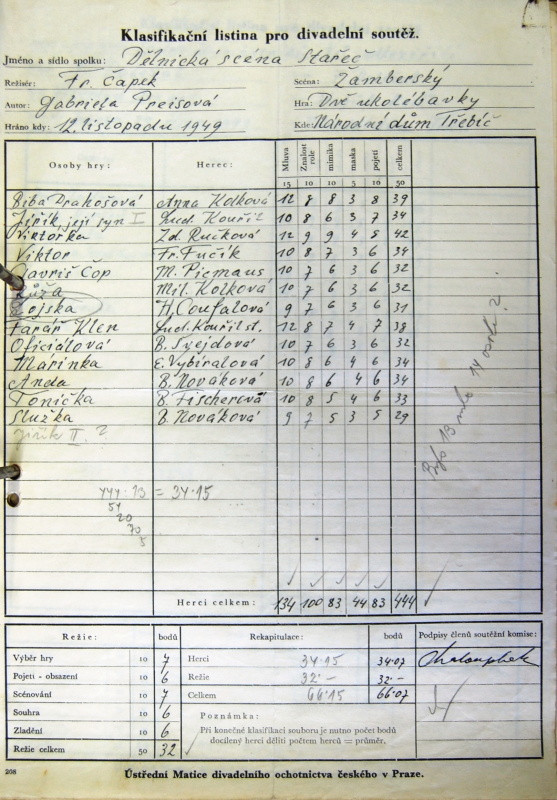 Klasifikační listina pro divadelní soutěž.
Jméno a sídlo spolku: Dělnická scéna Stařeč
Režisér: Fr. Čapek Scéna: Žamberský
Autor: Gabriela Preisová Hra: Dvě ukolébavky
Hráno kdy: 12. listopadu 1949 Kde: Národní dům Třebíč
Osoby hry: Herec: Mluva Znalost role mimika maska pojetí celkem
15 10 10 5 10 50
Drahošová Anna Kolková 12 8 8 3 8 39
Jiřík, její syn I Lud. Kouřil 10 8 6 3 7 34
Viktorka Zd. Ručková 12 9 9 4 8 42
Viktor Fr. Fučík 10 8 7 3 6 34
Čop M. 10 7 6 3 6 32
Růža Mil. Kolková 10 7 6 3 6 32
Lojska H. Coufalová 9 7 6 3 6 31
Farář Klen Lud. Kouřil st. 12 8 7 4 7 38
Oficiálová B. Švejdová 10 7 6 3 6 32
Mařinka E. Vybíralová 10 8 6 4 6 34
Anda B. Nováková 10 8 6 4 6 34
Tonička B. Fischerová 10 8 5 4 6 33
Služka B. Nováková 9 7 5 3 5 29
Jiřík II. ?
13 14 osob ?
444 : 13 = 34·15
54
20
70
5
Herci celkem: 134 100 83 44 83 444
Režie: bodů Rekapitulace: bodů Podpisy členů soutěžní komise:
Výběr hry 10 7 Herci 34·15 34·07 Chaloupek
Pojetí - obsazení 10 6 Režie 32·– 32·–
Scénování 10 7 Celkem 66·15 66·07
Souhra 10 6 Poznámka:
Zladění 10 6 Při konečné klasifikaci souboru je nutno počet bodů
Režie celkem 50 32 docílený herci děliti počtem herců = průměr.
208 Ústřední Matice divadelního ochotnictva českého v Praze.